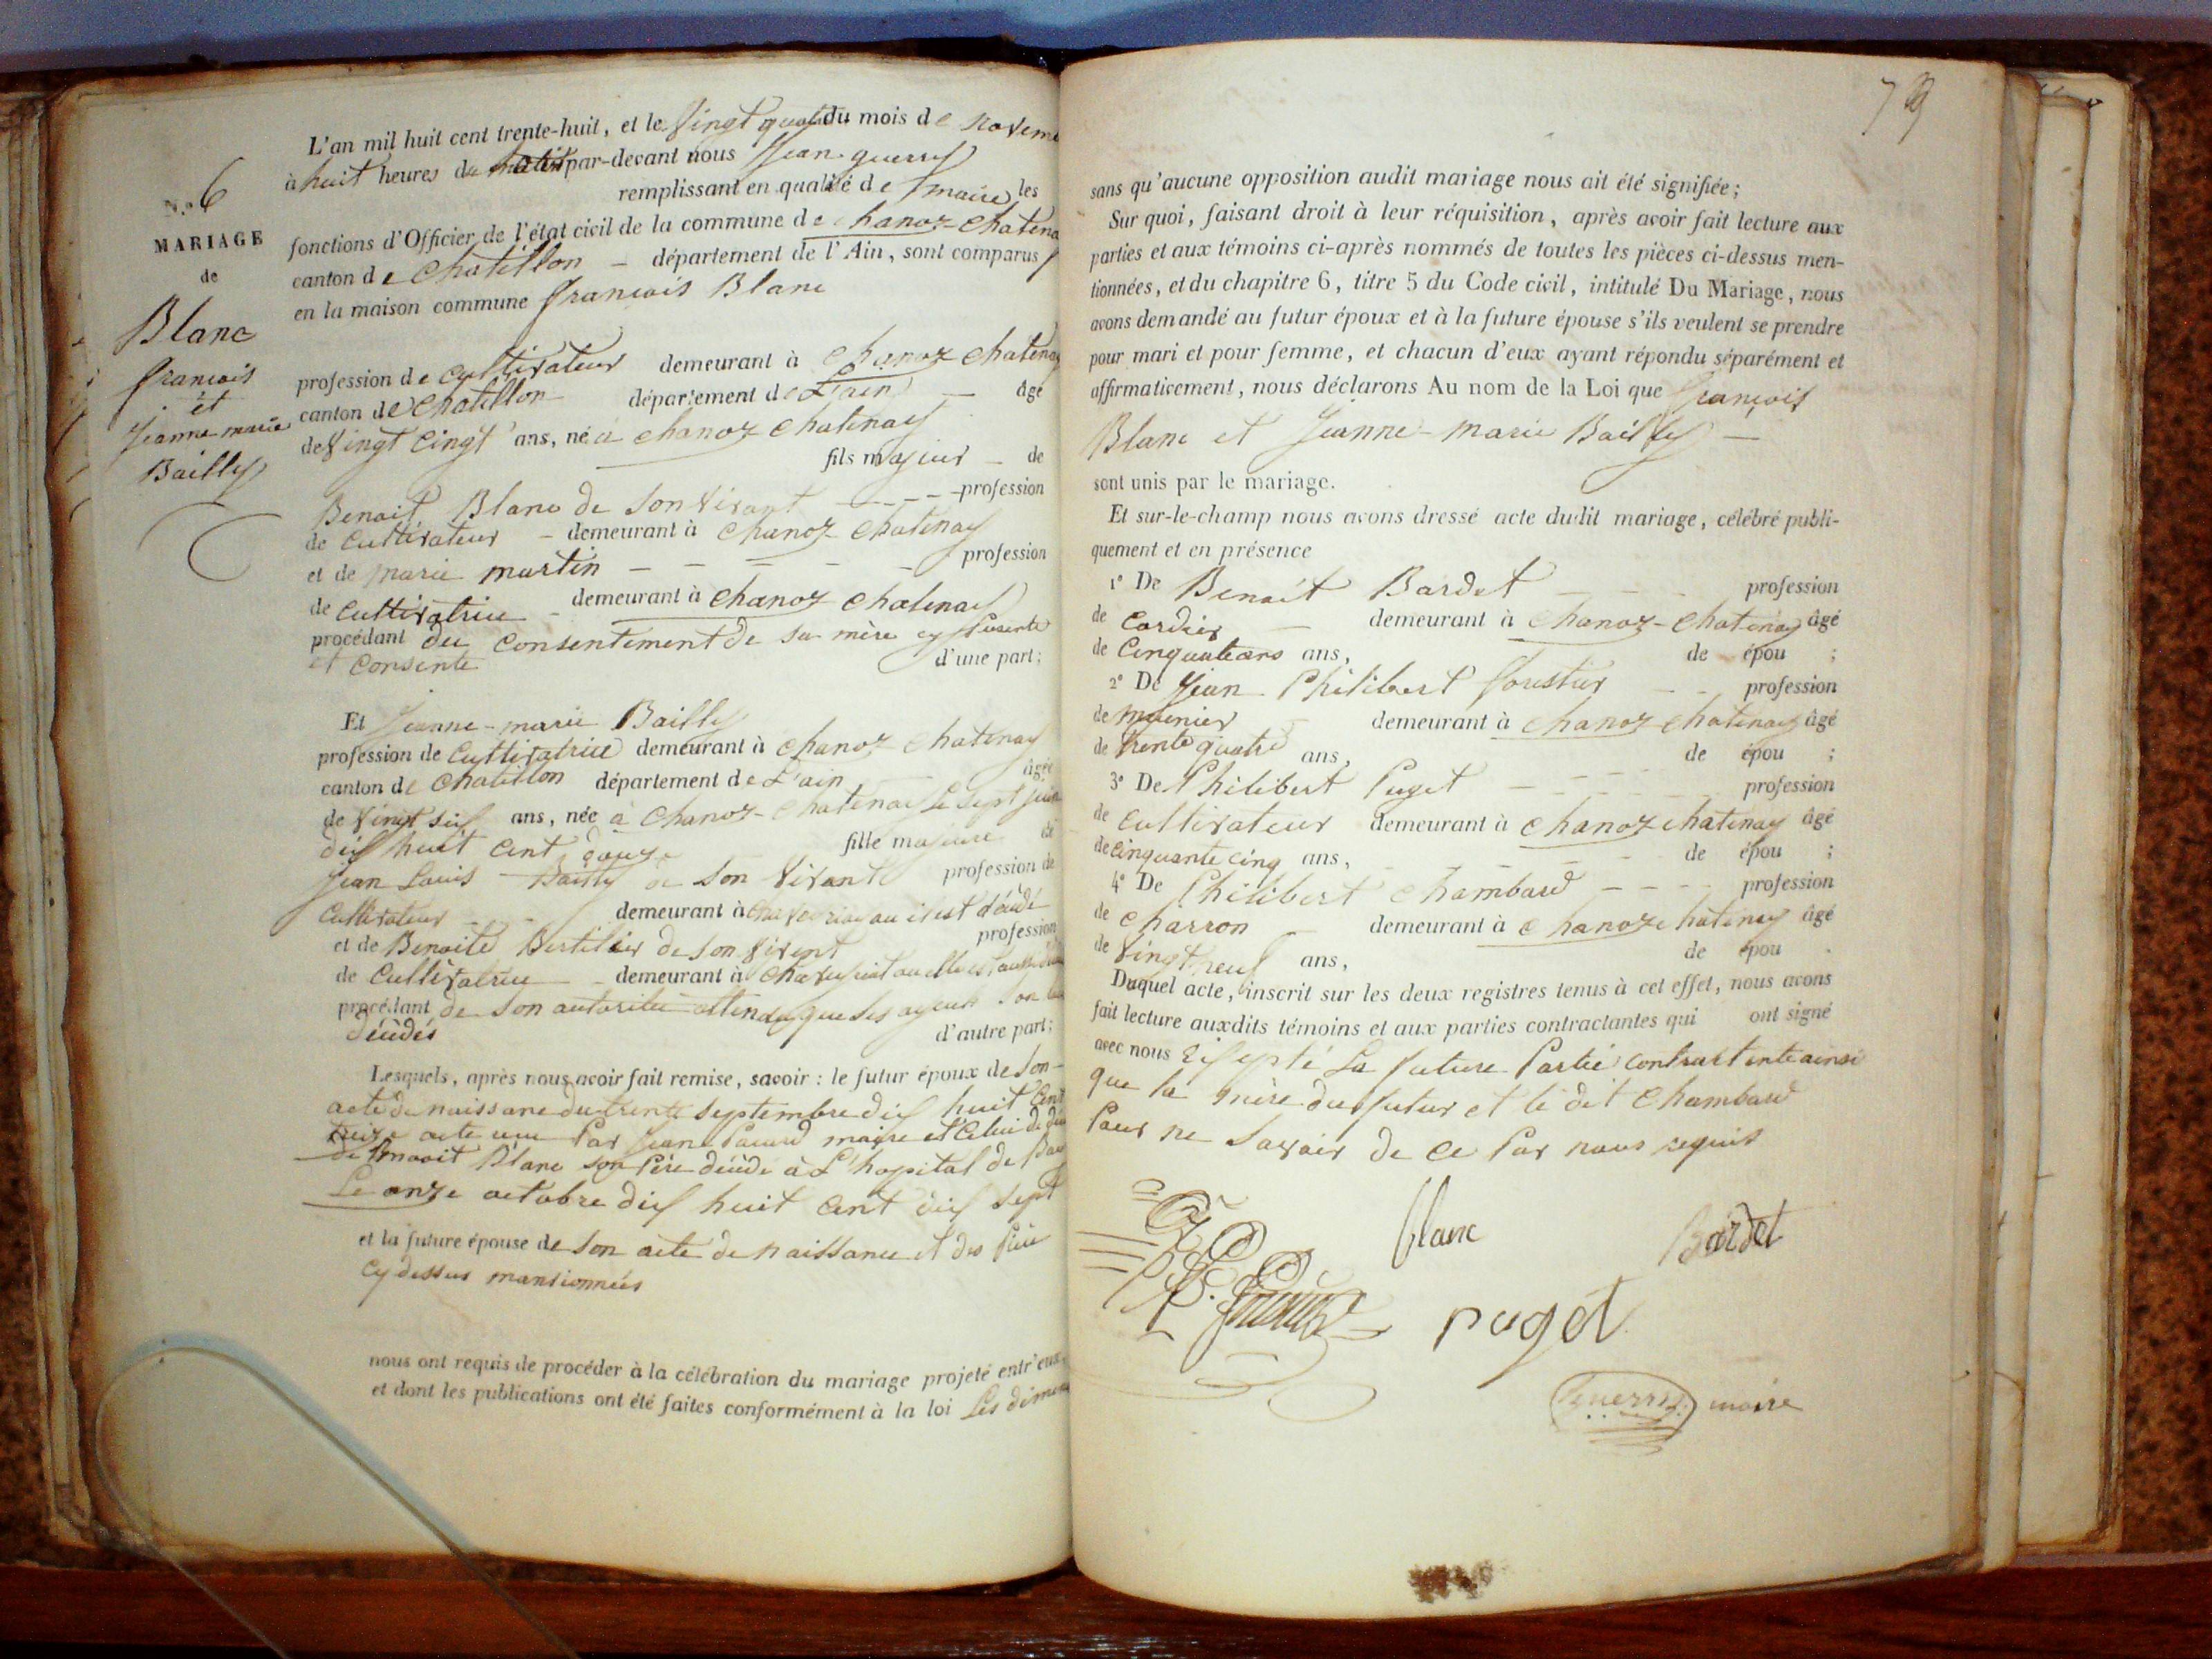 L'an mil huit cent trente-huit, et le Vingt quatre du mois de Novem
à huit heures du matin par-devant nous Jean guerry
remplissant en qualité de maire les
fonctions d'Officier de l'état civil de la commune de chanoz-chatena
canton de chatillon – département de l'Ain, sont comparus
en la maison commune francois Blanc
N.o 6
MARIAGE
de
Blanc
francois
et
jeanne-marie
Bailly
profession de cultivateur demeurant à chanoz chatenay
canton de chatillon département de L'ain — âgé
de Vingt Cinq ans, né à chanoz chatenay
fils majeur – de
Benoit Blanc de son vivant – – – profession
de cultivateur – demeurant à chanoz chatenay
et de marie martin – – – – – profession
de cultivatrice – demeurant à chanoz chatenay
procédant du consentement de sa mère cy presente
et consente d'une part;
Et Jeanne-marie Bailly
profession de cultivatrice demeurant à chanoz chatenay
canton de chatillon département de L'ain âgée
de Vingt six ans, née à chanoz-chatenay le sept juin
dix huit cent douze fille majeure de
jean Louis Bailly de son vivant profession de
cultivateur – – demeurant à ou il est décédé
et de Benoite de son vivent profession
de cultivatrice – demeurant à ou elle est aussi
procédant de son autorité attendu que ses ayeuls son
décédés d'autre part;
Lesquels, après nous avoir fait remise, savoir : le futur époux de son
acte de naissance du trente septembre dix huit cent
treize acte reçu par jean maire et celui de
de Benoit Blanc son père décédé à L'hopital de
Le onze octobre dix huit cent dix sept
et la future épouse de son acte de naissance et des
cy dessus mansionnées
nous ont requis de procéder à la célébration du mariage projeté entr'eux,
et dont les publications ont été faites conformément à la loi Les diman
sans qu'aucune opposition audit mariage nous ait été signifiée;
Sur quoi, faisant droit à leur réquisition, après avoir fait lecture aux
parties et aux témoins ci-après nommés de toutes les pièces ci-dessus men-
tionnées, et du chapitre 6, titre 5 du Code civil, intitulé Du Mariage, nous
avons demandé au futur époux et à la future épouse s'ils veulent se prendre
pour mari et pour femme, et chacun d'eux ayant répondu séparément et
affirmativement, nous déclarons Au nom de la Loi que françois
Blanc et Jeanne-marie Bailly –
sont unis par le mariage.
Et sur-le-champ nous avons dressé acte dudit mariage, célébré publi-
quement et en présence
1º De Benoit Bardet – – – profession
de Cordier – demeurant à chanoz-chatenay âgé
de Cinquante ans, de épou ;
2º De Jean Philibert forestier – – profession
de meunier demeurant à chanoz chatenay âgé
de trente quatre ans, de épou ;
3º De Philibert Puget – – – – profession
de cultivateur demeurant à chanoz chatenay âgé
de cinquante cinq ans, – – – – de épou ;
4º De Philibert chambard – – – – profession
de charron – demeurant à chanoz chatenay âgé
de Vingt neuf ans, de épou .
Duquel acte, inscrit sur les deux registres tenus à cet effet, nous avons
fait lecture auxdits témoins et aux parties contractantes qui ont signé
avec nous la future Partie contractente ainsi
que la mère du futur et le dit chambard
Pour ne Savoir de ce Par nous requis
blanc Bardet
puget
Guerry maire